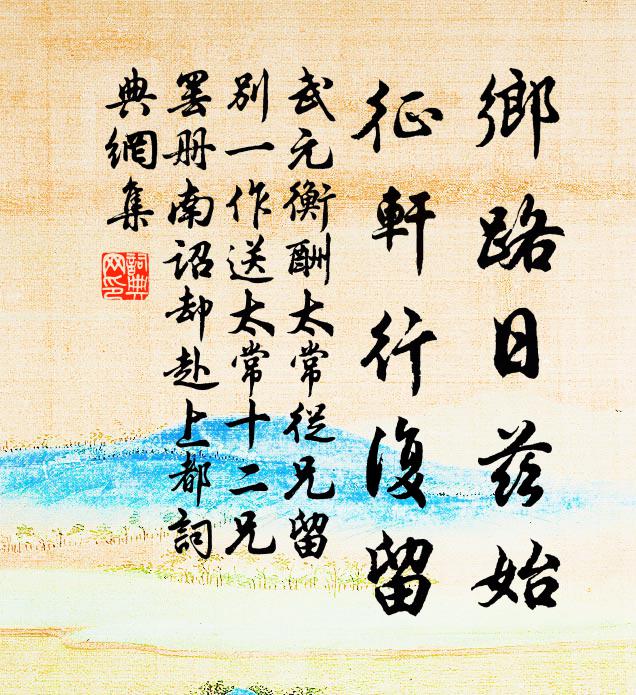 鄉路日茲始
征軒行復留
武元衡酬太常從兄留
別一作送太常十二兄
罷册南詔却赴上都詞
典網集
詞典
网印